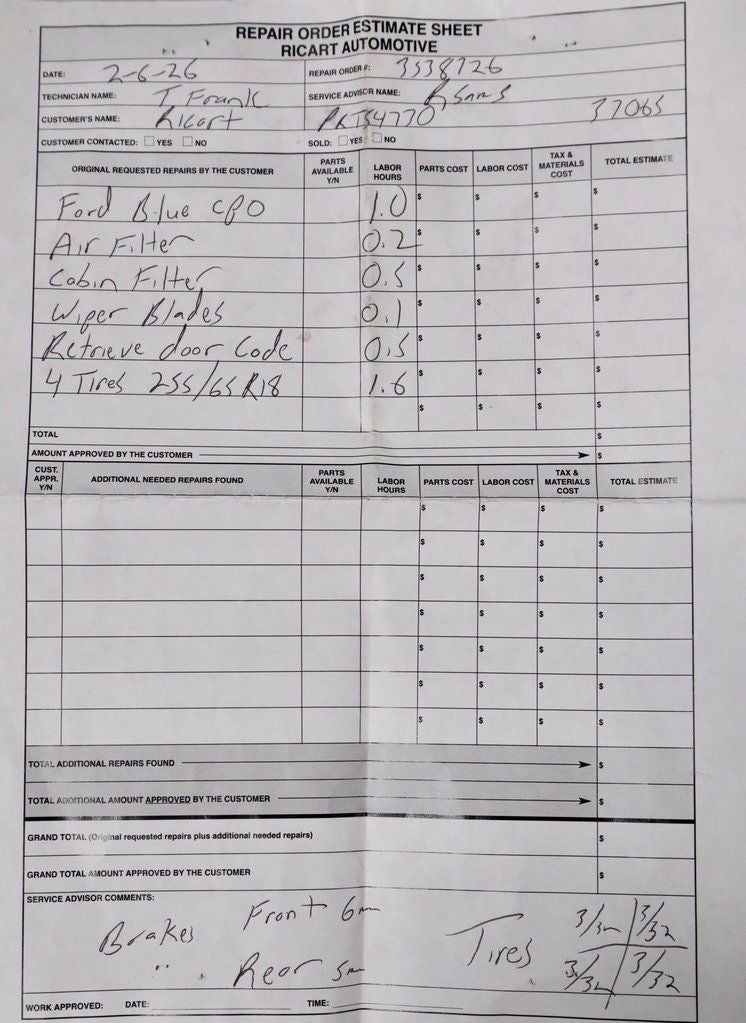 REPAIR ORDER ESTIMATE SHEET
RICART AUTOMOTIVE
DATE: 2-6-26 REPAIR ORDER #: 3538726
TECHNICIAN NAME: T Frank SERVICE ADVISOR NAME: R Sams
CUSTOMER'S NAME: Ricart PRT54770 37065
CUSTOMER CONTACTED: YES NO SOLD: YES NO
ORIGINAL REQUESTED REPAIRS BY THE CUSTOMER PARTS AVAILABLE Y/N LABOR HOURS PARTS COST LABOR COST TAX & MATERIALS COST TOTAL ESTIMATE
Ford Blue CPO 1.0 $ $ $ $
Air Filter 0.2 $ $ $ $
Cabin Filter 0.5 $ $ $ $
Wiper Blades 0.1 $ $ $ $
Retrieve door Code 0.5 $ $ $ $
4 Tires 255/65R18 1.6 $ $ $ $
$ $ $ $
TOTAL $
AMOUNT APPROVED BY THE CUSTOMER $
CUST. APPR. Y/N ADDITIONAL NEEDED REPAIRS FOUND PARTS AVAILABLE Y/N LABOR HOURS PARTS COST LABOR COST TAX & MATERIALS COST TOTAL ESTIMATE
$ $ $ $
$ $ $ $
$ $ $ $
$ $ $ $
$ $ $ $
$ $ $ $
$ $ $ $
TOTAL ADDITIONAL REPAIRS FOUND $
TOTAL ADDITIONAL AMOUNT APPROVED BY THE CUSTOMER $
GRAND TOTAL (Original requested repairs plus additional needed repairs) $
GRAND TOTAL AMOUNT APPROVED BY THE CUSTOMER $
SERVICE ADVISOR COMMENTS:
Brakes Front 6mm Tires 3/32 3/32
" Rear 5mm 3/32 3/32
WORK APPROVED: DATE: TIME: